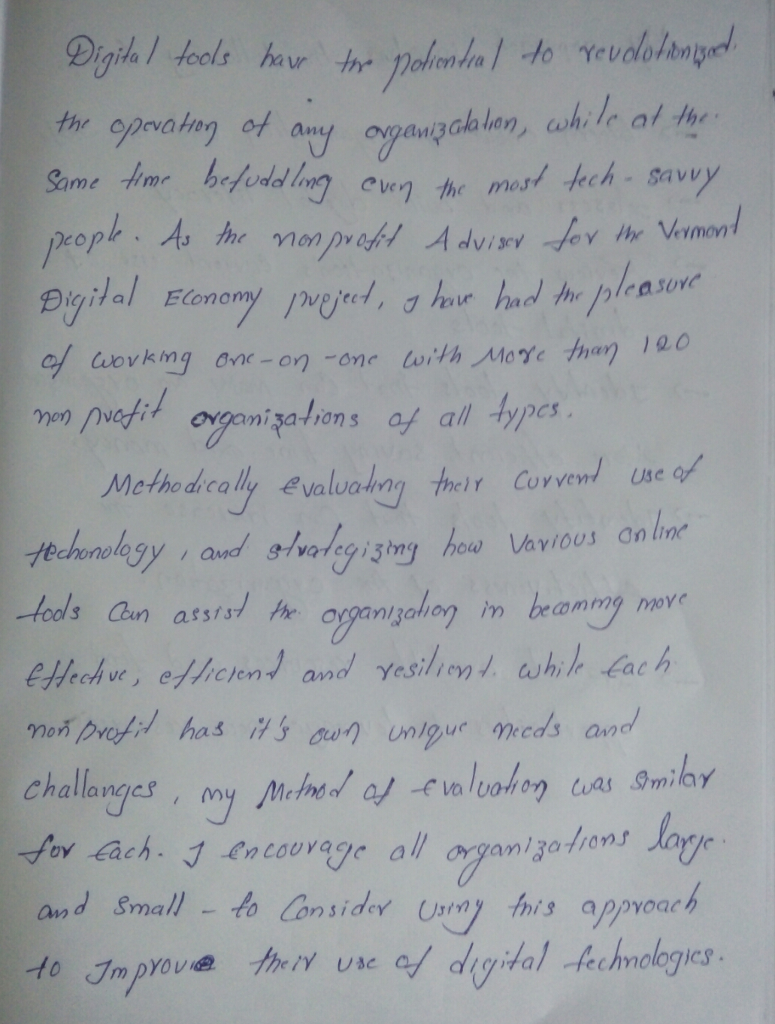 Digital tools have the potiential to revolotionized.
the operation of any organizatation, while at the.
Same time befuddling even the most tech-savvy
people. As the nonprofit Adviser for the Vermont
Digital Economy project, I have had the pleasure
of working one-on-one with More than 120
non profit organizations of all types.
Methodically evaluating their Current use of
techonology, and strategizing how Various online
tools Can assist the organization in becoming more
Effective, efficient and resilient. while Each
non profit has it's own unique needs and
challanges, my Method of evaluation was Similar
for Each. I encourage all organizations large.
and Small - to Consider Using this approach
to Improve their use of digital technologies.